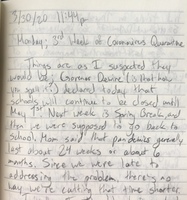 3/30/20 11:44p
Monday, 3rd Week of Coronavirus Quarantine
Things are as I suspected they
would be. Governor DeWine (is that how
you spell it?) declared today that
schools will continue to be closed until
May 1st. Next week is Spring Break, and
then we were supposed to go back to
school. Mom said that pandemics generally
last about 24 weeks or about 6
months. Since we were late to
addressing the problem, there's no
way we're cutting that time shorter.